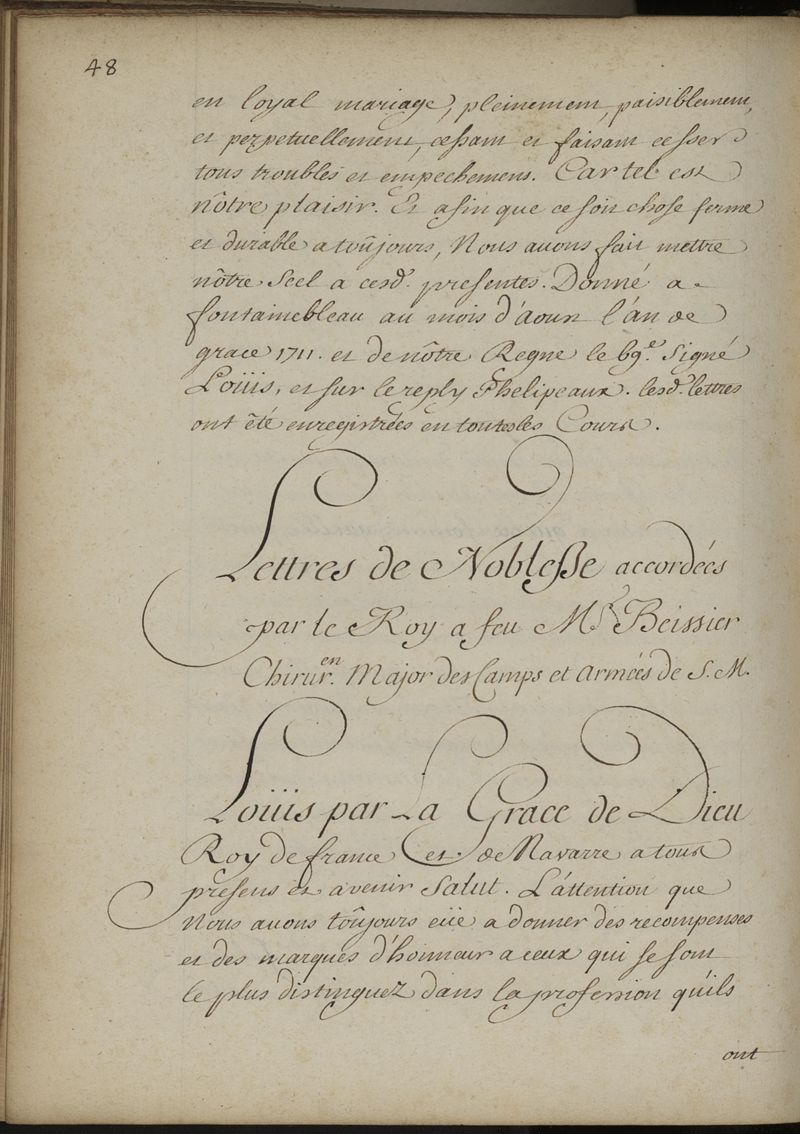 48
en loyal mariage, pleinement, paisiblement,
et perpetuellement, cessant et faisant cesser
tous troubles et empechemens. Car tel est
nôtre plaisir. Et afin que ce soit chose ferme
et durable a toûjours, Nous avons fait mettre
nôtre Scel a cesd. presentes. Donné a
fontainebleau au mois d'aoust l'an de
grace 1711. et de nôtre Regne le 69.e Signé
Loüis, et sur le reply Phelipeaux. lesd. lettres
ont été enregistrées en toutes les Cours.
Lettres de Noblesse accordées
par le Roy a feu Mr. Beissier
Chirur.en Major des Camps et Armées de S. M.
Loüis par La Grace de Dieu
Roy de france et de Navarre a tous
presens et avenir Salut. L'attention que
Nous avons toûjours eüe a donner des recompenses
et des marques d'honneur a ceux qui se sont
le plus distinguez dans la profession qu'ils
ont